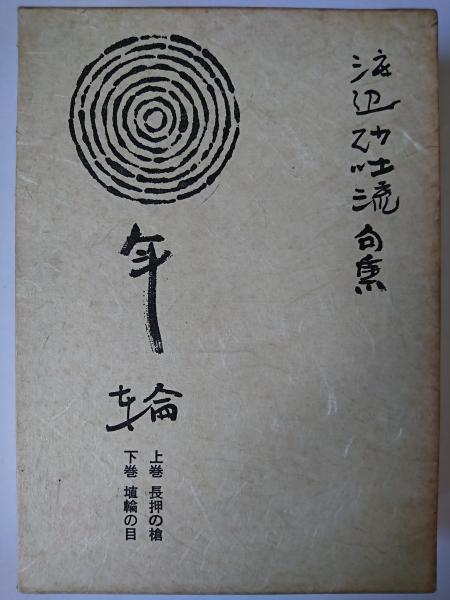 渡辺砂吐流句集
年輪
上巻 長押の槍
下巻 埴輪の目